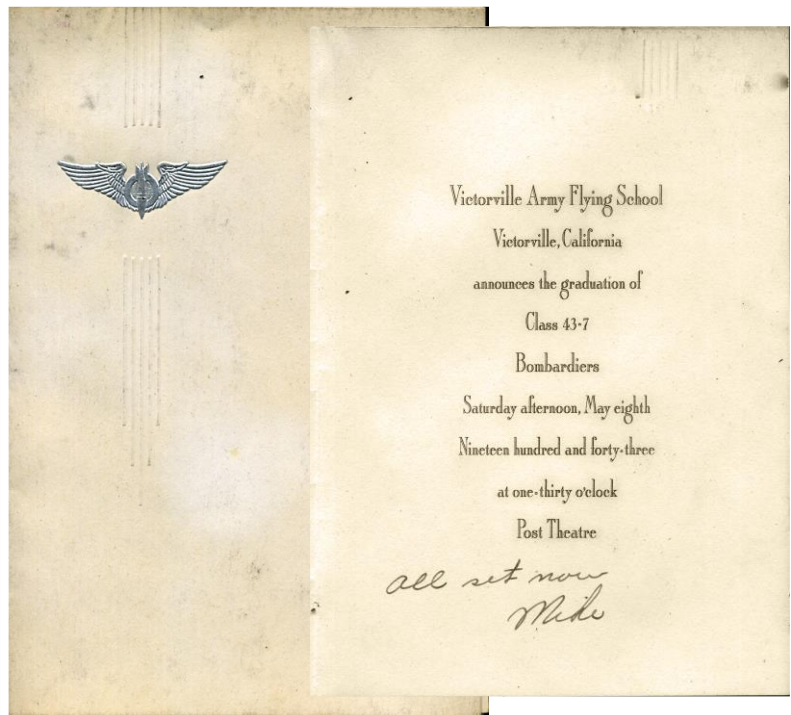 Victorville Army Flying School
Victorville, California
announces the graduation of
Class 43-7
Bombardiers
Saturday afternoon, May eighth
Nineteen hundred and forty-three
at one-thirty o'clock
Post Theatre
all set now
Mike